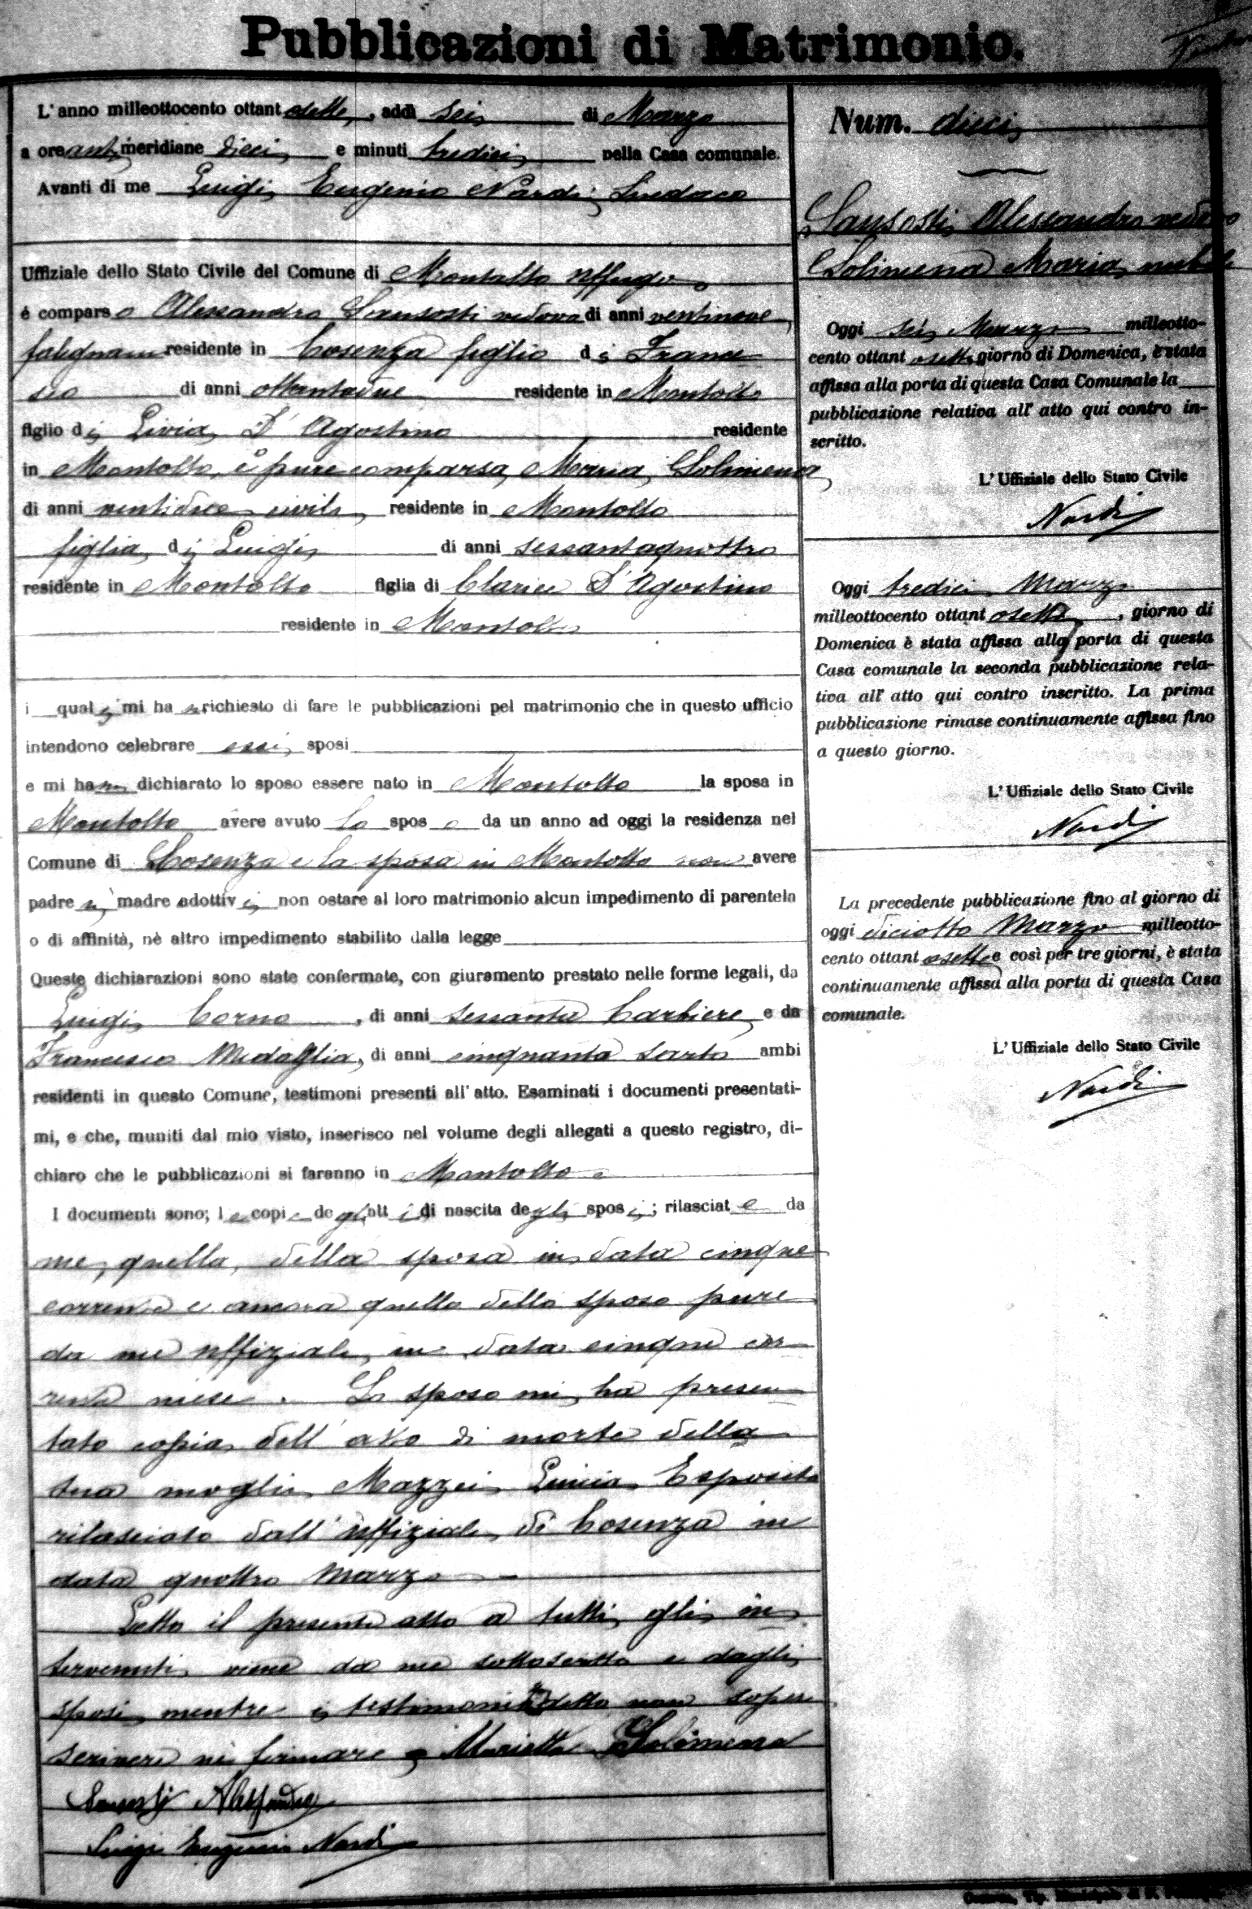 Pubblicazioni di Matrimonio.
L'anno milleottocento ottantasette, addì sei di Marzo
a ore antimeridiane dieci e minuti tredici nella Casa comunale.
Avanti di me Luigi Eugenio Nardi Sindaco
Uffiziale dello Stato Civile del Comune di Montalto Uffugo
é comparso Alessandro Sansosti vedovo di anni ventinove,
falegname residente in Cosenza figlio di France
sco di anni ottantadue residente in Montalto
figlio di Livia D'Agostino residente
in Montalto, è pure comparsa Maria Solimena
di anni ventidue civile, residente in Montalto
figlia di Luigi di anni sessantaquattro
residente in Montalto figlia di Clarice D'Agostino
residente in Montalto
i quali mi hanno richiesto di fare le pubblicazioni pel matrimonio che in questo ufficio
intendono celebrare essi sposi
e mi hanno dichiarato lo sposo essere nato in Montalto la sposa in
Montalto avere avuto lo sposo da un anno ad oggi la residenza nel
Comune di Cosenza e la sposa in Montalto non avere
padre nè madre adottivi, non ostare al loro matrimonio alcun impedimento di parentela
o di affinità, nè altro impedimento stabilito dalla legge
Queste dichiarazioni sono state confermate, con giuramento prestato nelle forme legali, da
Luigi Corno, di anni sessanta barbiere, e da
Francesco Medaglia, di anni cinquanta sarto ambi
residenti in questo Comune, testimoni presenti all'atto. Esaminati i documenti presentati-
mi, e che, muniti dal mio visto, inserisco nel volume degli allegati a questo registro, di-
chiaro che le pubblicazioni si faranno in Montalto
I documenti sono; le copie degli atti di nascita degli sposi; rilasciate da
me, quella della sposa in data cinque
corrente e ancora quella dello sposo pure
da me uffiziale, in data cinque cor-
rente mese. Lo sposo mi ha presen-
tato copia dell'atto di morte della
sua moglie Mazzei Esposito
rilasciato dall'uffiziale di Cosenza in
data quattro Marzo
Letto il presente atto a tutti gli in-
tervenuti viene da me sottoscritto e dagli
sposi mentre i testimoni detto non sapere
scrivere nè firmare Marietta Solimena
Sansosti Alessandro
Luigi Eugenio Nardi
Num. dieci
Sansosti Alessandro vedovo
Solimena Maria nubile
Oggi sei Marzo milleotto-
cento ottantasette, giorno di Domenica, è stata
affissa alla porta di questa Casa Comunale la
pubblicazione relativa all'atto qui contro in-
scritto.
L'Uffiziale dello Stato Civile
Nardi
Oggi tredici Marzo
milleottocento ottantasette, giorno di
Domenica è stata affissa alla porta di questa
Casa comunale la seconda pubblicazione rela-
tiva all'atto qui contro inscritto. La prima
pubblicazione rimase continuamente affissa fino
a questo giorno.
L'Uffiziale dello Stato Civile
Nardi
La precedente pubblicazione fino al giorno di
oggi diciotto Marzo milleotto-
cento ottantasette e così per tre giorni, è stata
continuamente affissa alla porta di questa Casa
comunale.
L'Uffiziale dello Stato Civile
Nardi